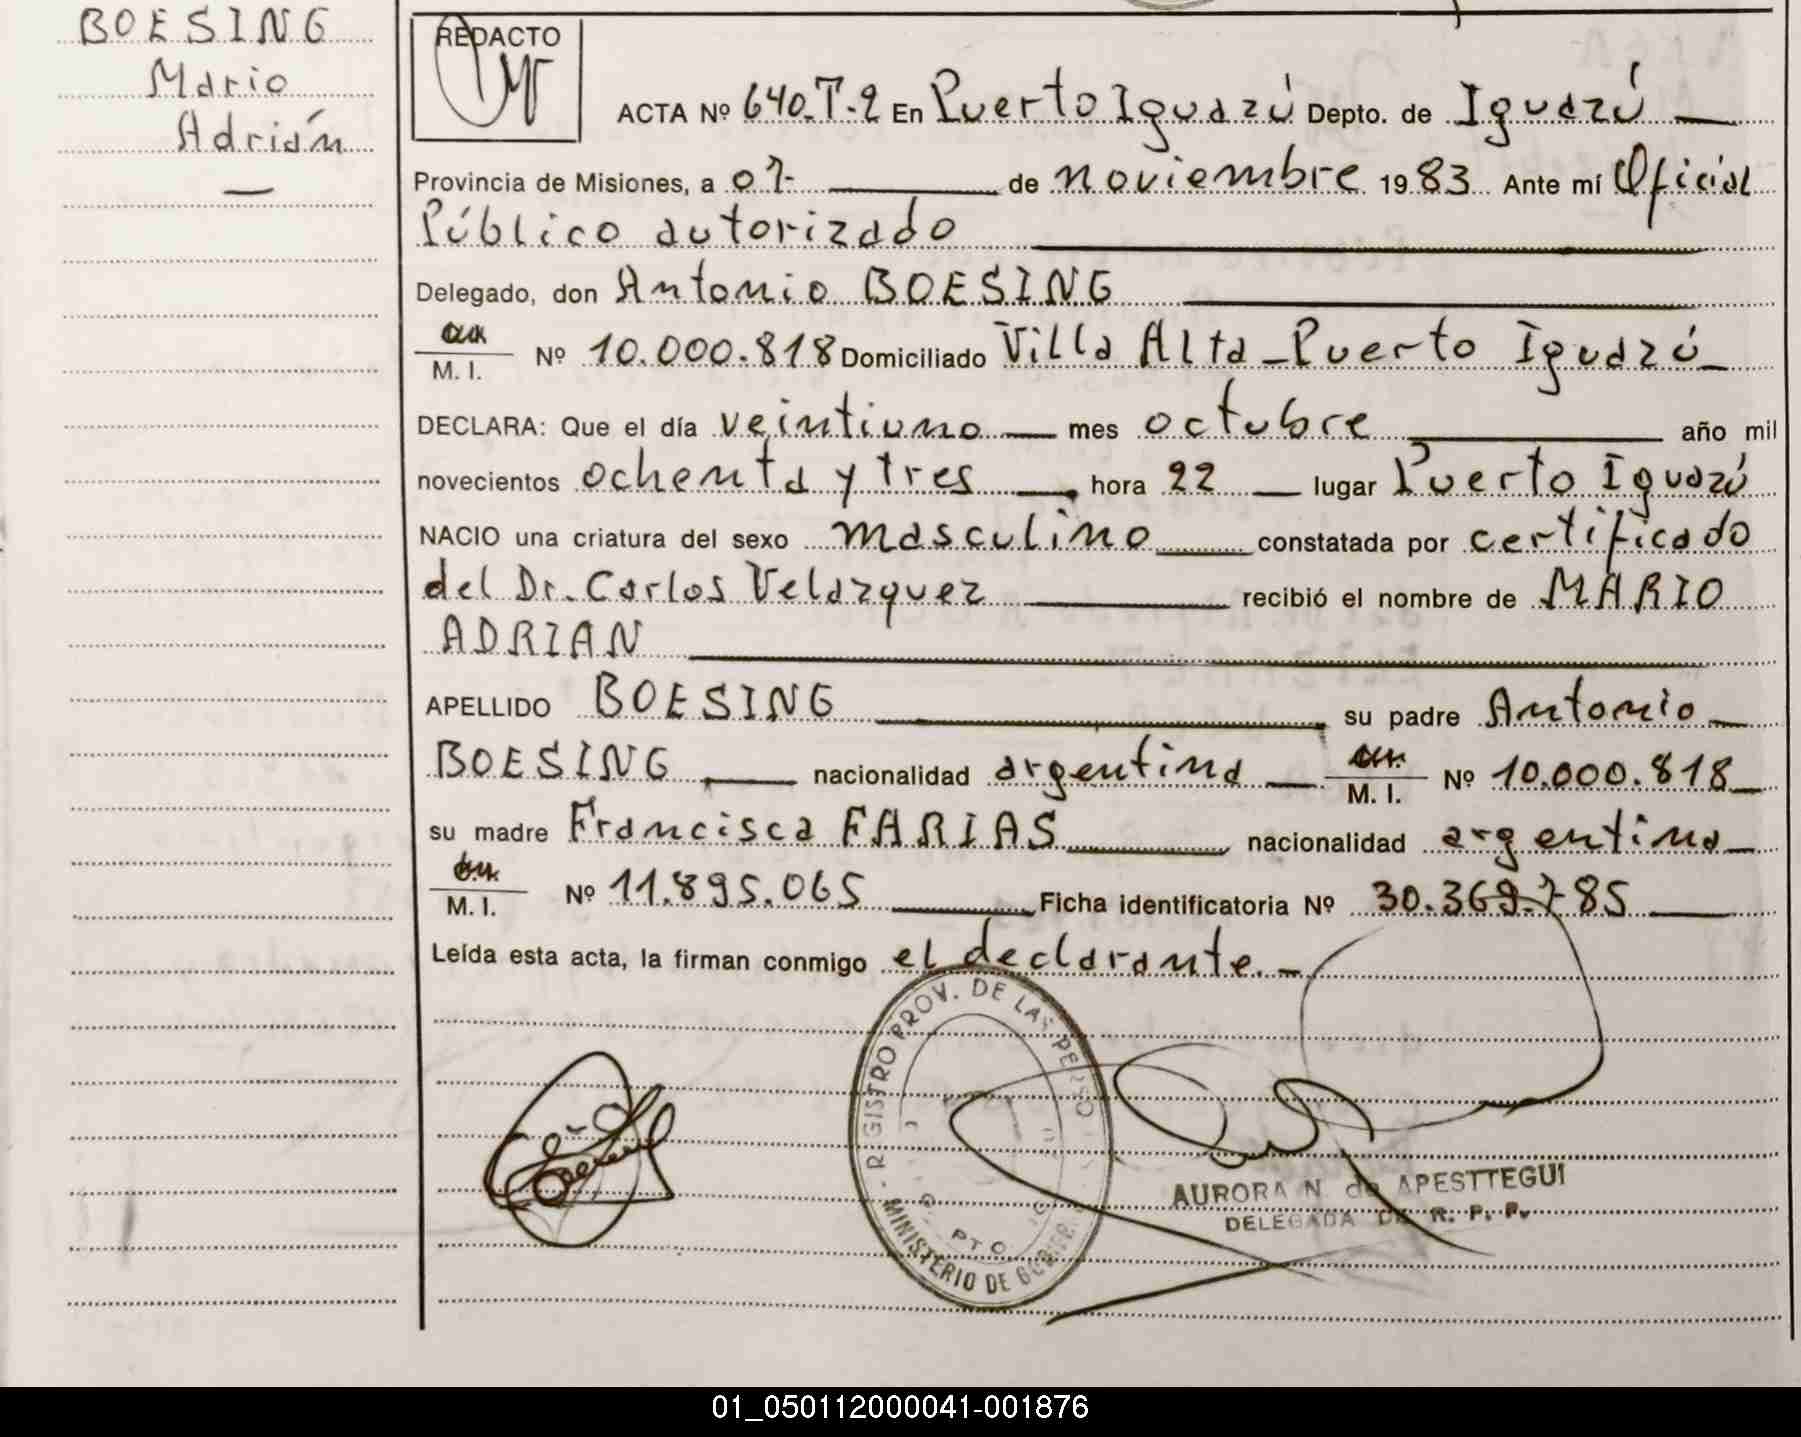 BOESING
Mario
Adrián
REDACTO
ACTA Nº 640.T-2 En Puerto Iguazú Depto. de Iguazú
Provincia de Misiones, a 07 de noviembre 1983 Ante mí Oficial
Público autorizado
Delegado, don Antonio BOESING
M. I. Nº 10.000.818 Domiciliado Villa Alta - Puerto Iguazú
DECLARA: Que el día veintiuno mes octubre año mil
novecientos ochenta y tres, hora 22 lugar Puerto Iguazú
NACIO una criatura del sexo masculino constatada por certificado
del Dr. Carlos Velazquez recibió el nombre de MARIO
ADRIAN
APELLIDO BOESING su padre Antonio
BOESING nacionalidad argentina M. I. Nº 10.000.818
su madre Francisca FARIAS nacionalidad argentina
M. I. Nº 11.895.065 Ficha identificatoria Nº 30.369.785
Leída esta acta, la firman conmigo el declarante.
REGISTRO PROV. DE LAS PERSO
MINISTERIO DE
PTO
AURORA N. de APESTTEGUI
DELEGADA DE R. P. P.
01_050112000041-001876